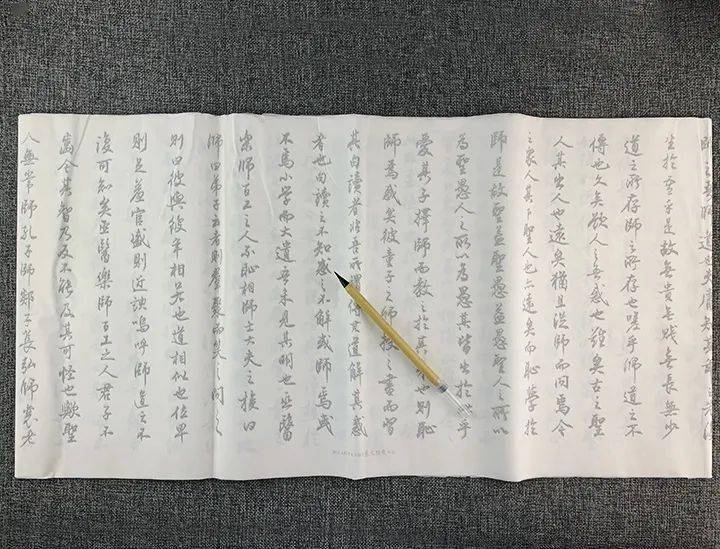 也夫庸知其
生於吾乎是故無貴無賤無長無少
道之所存師之所存也嗟乎師道之不
傳也久矣欲人之無惑也難矣古之聖
人其出人也遠矣猶且從師而問焉今
之衆人其下聖人也亦遠矣而恥學於
師是故聖益聖愚益愚聖人之所以
為聖愚人之所以為愚其皆出於乎
愛其子擇師而教之於其也則恥
師焉惑矣彼童子之師授之書而習
其句讀者非吾所謂傳其道解其惑
者也句讀之不知惑之不解或師焉或
不焉小學而大遺吾未見其明也巫醫
樂師百工之人不恥相師士大夫之族曰
師曰弟子云者則群聚而笑之問之
則曰彼與彼年相若也道相似也位卑
則足羞官盛則近諛嗚呼師道之不
復可知矣巫醫樂師百工之人君子不
齒今其智乃反不能及其可怪也歟聖
人無常師孔子師郯子萇弘師襄老